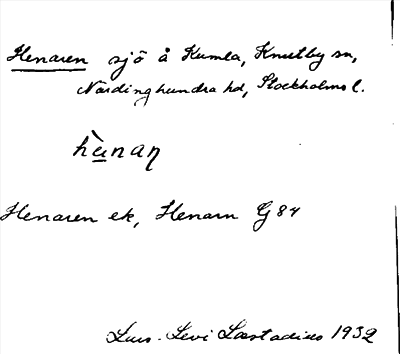 Henaren sjö å Kumla, Knutby sn,
Närdinghundra hd, Stockholms l.
hènaŋ
Henaren ek, Henarn G 84
Lars-Levi Læstadius 1932